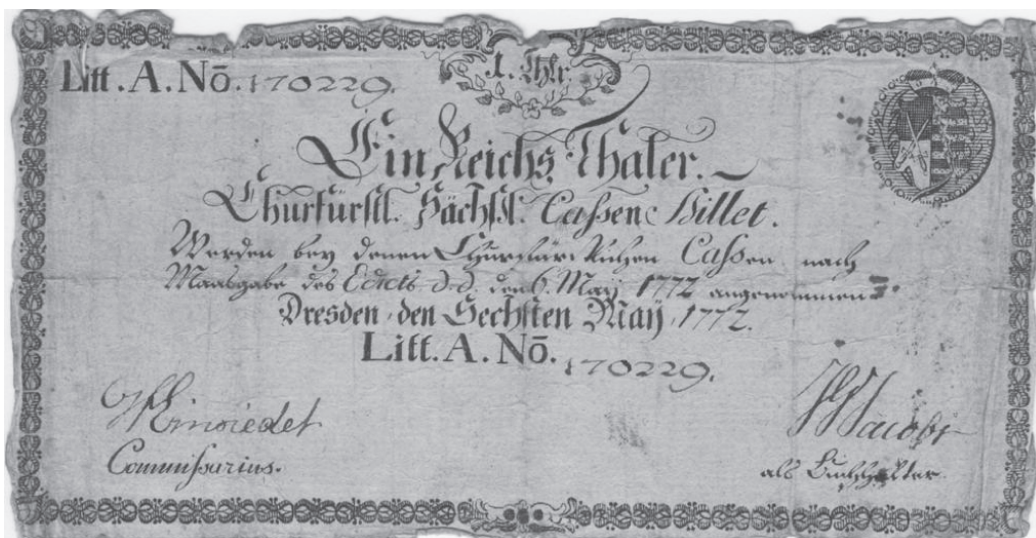 1. Thlr.
Litt. A. Nō. 170229.
Ein Reichs Thaler.
Churfürstl. Sächßl. Caßen Billet.
Werden bey denen Churfürstlichen Caßen nach
Maasgabe des Edicts d.d. den 6. May 1772 angenommen
Dresden den Sechsten May 1772.
Litt. A. Nō. 170229.
Commissarius.
als Buchhalter.